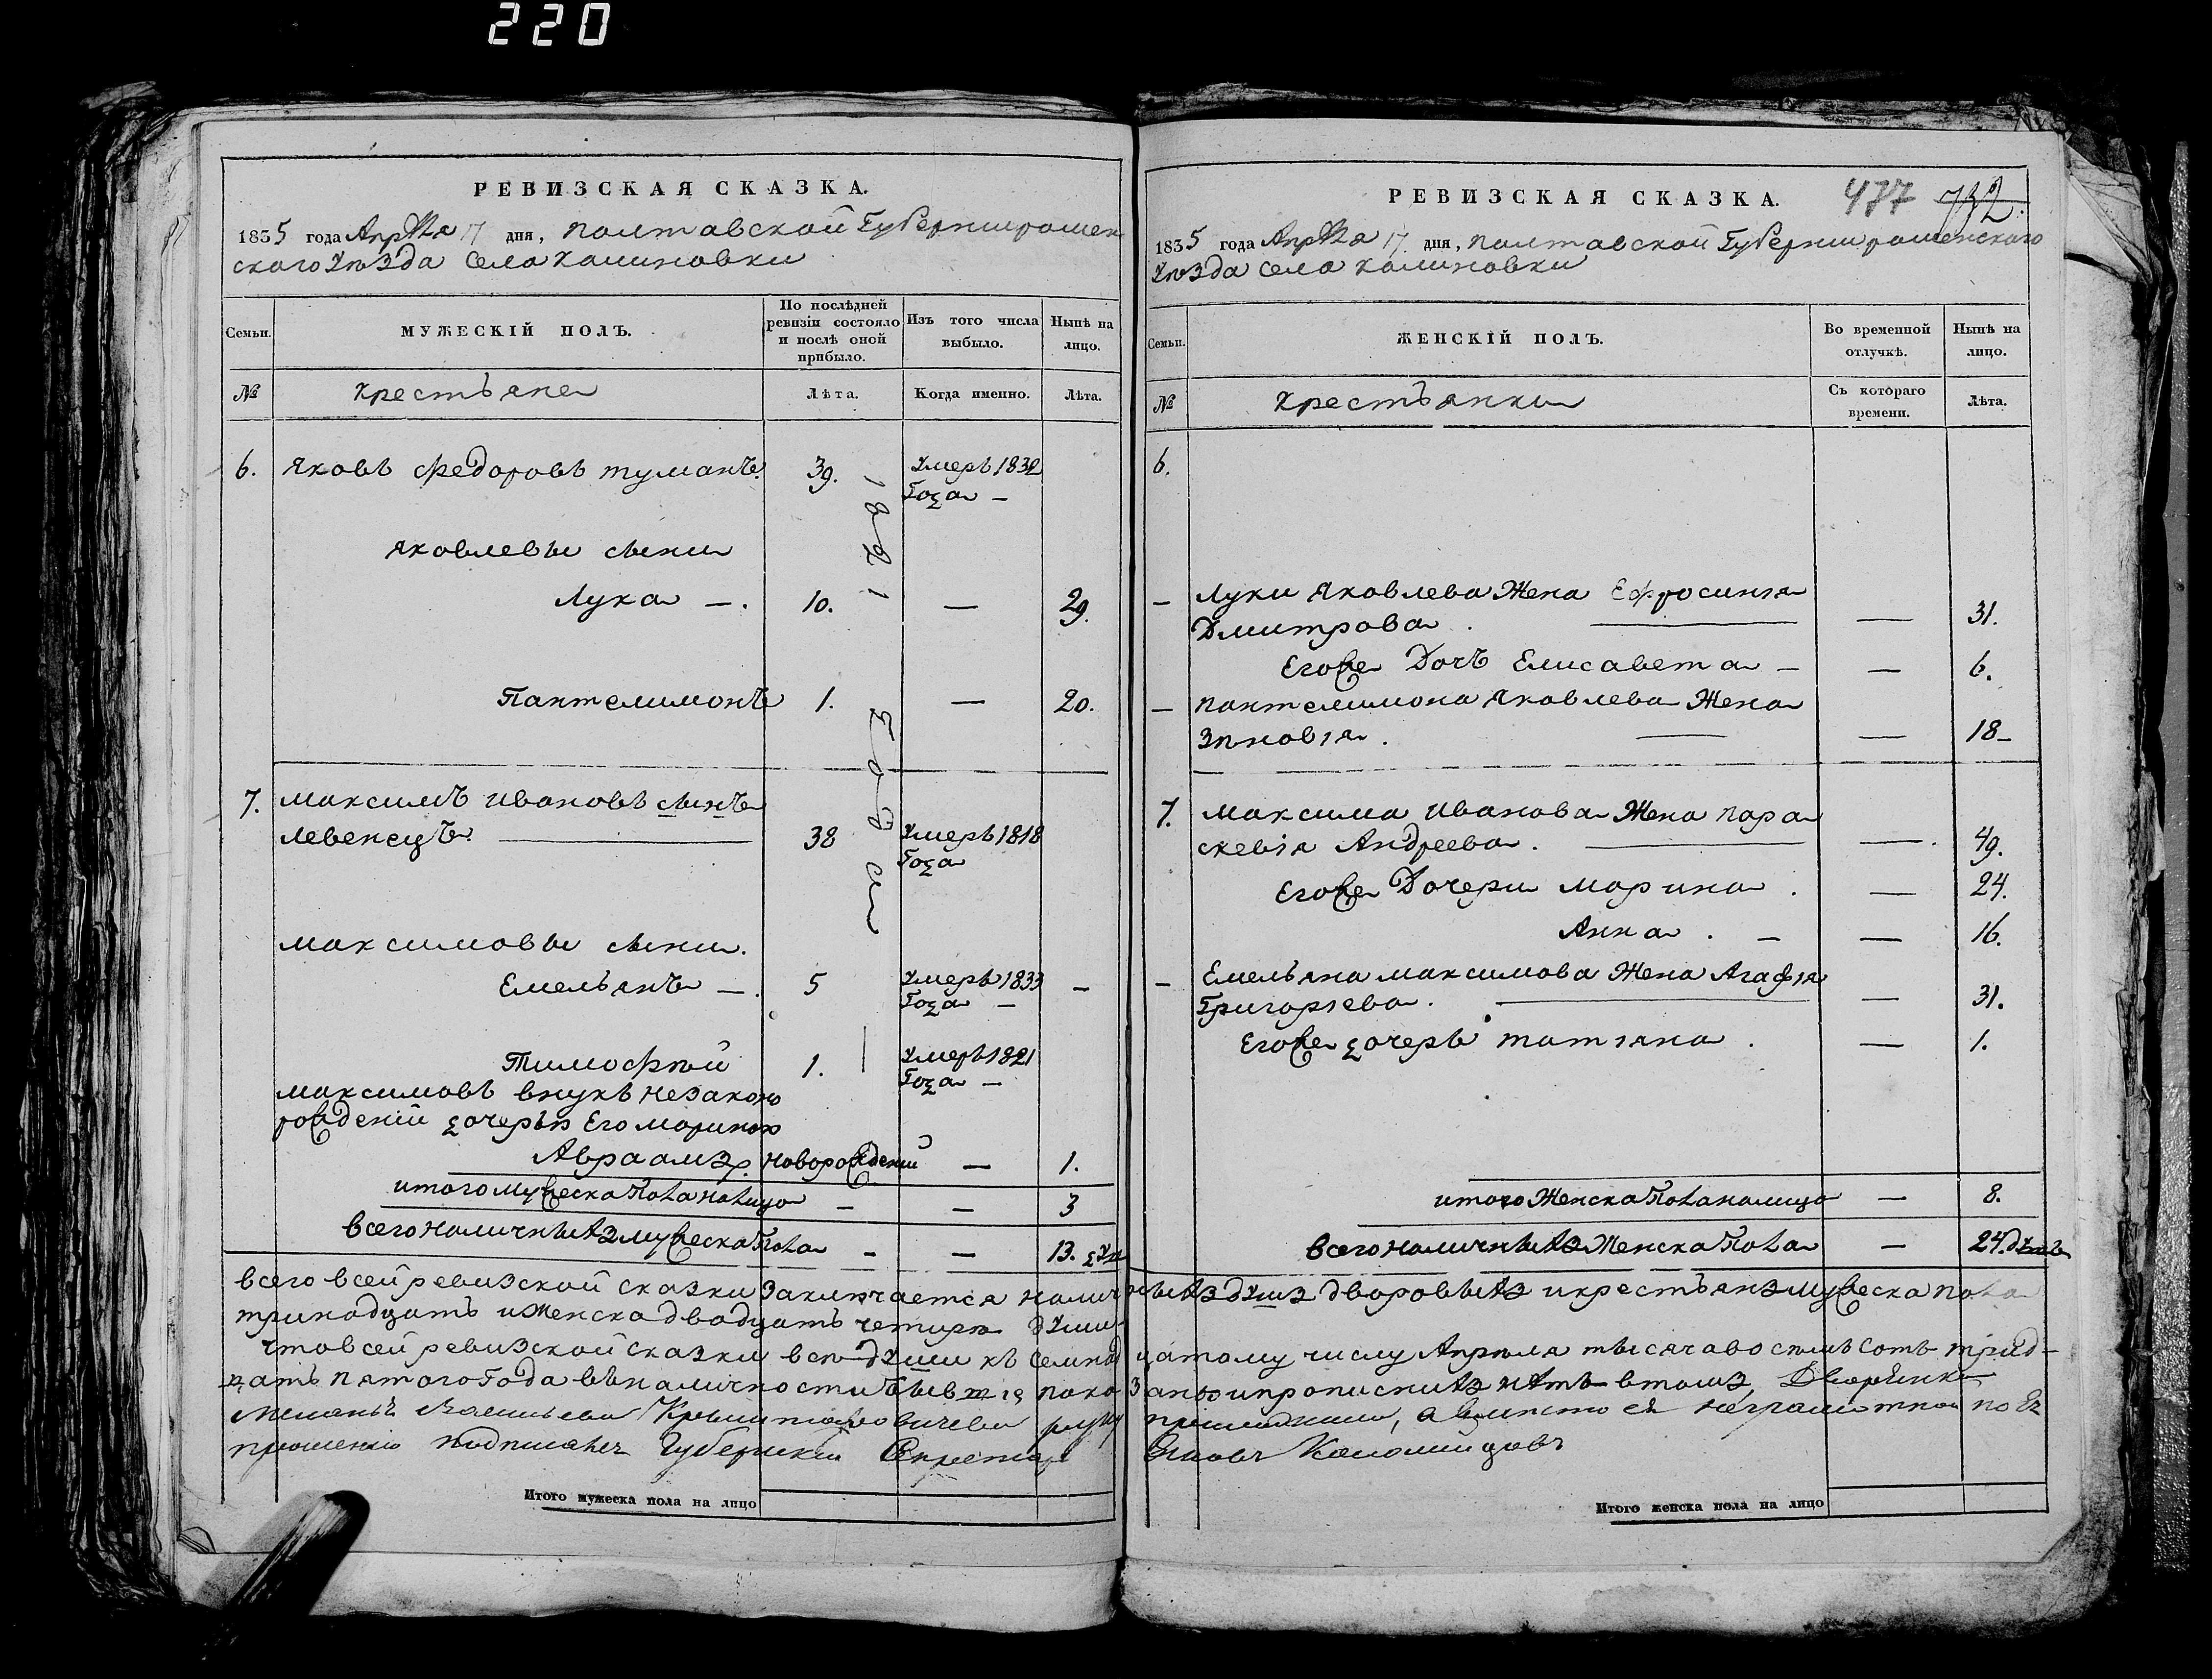 220
РЕВИЗСКАЯ СКАЗКА.
1835 года Апрѣля 17 дня, полтавской Губерніи ромен
ского уѣзда села калиновки
Семьи.
МУЖЕСКІЙ ПОЛЪ.
По послѣдней ревизіи состояло и послѣ оной прибыло.
Изъ того числа выбыло.
Нынѣ на лицо.
№
крестьяне
Лѣта.
Когда именно.
Лѣта.
1821 Года
6. Яковъ Федоровъ туманъ. 39. умеръ 1832
Года —
яковлевы сыни
Лука —. 10. — 29.
Пантелимонъ 1. — 20.
7. максимъ ивановъ сынъ
левенецъ 38 умеръ 1818
Года
максимовы сыни.
Емельянъ —. 5 умеръ 1833 —
Года —
Тимофѣй 1. умеръ 1821
Года —
максимовъ внукъ незаконо
рожденій дочерѣ Его марины
Авраамъ. новорожденій — 1.
итого мужеска пола налицо — — 3
всего наличныхъ мужеска пола — — 13. душ
РЕВИЗСКАЯ СКАЗКА.
477 732.
1835 года Апрѣля 17. дня, полтавской Губерніи роменского
уѣзда села калиновки
Семьи.
ЖЕНСКІЙ ПОЛЪ.
Во временной отлучкѣ.
Нынѣ на лицо.
№
крестьянки
Съ котораго времени.
Лѣта.
6.
— Луки яковлева Жена Ефросинія
Дмитрова. — 31.
Егоже Дочь Елисавета — — 6.
— пантелимона яковлева Жена
Зѣновія. — 18—
7. максима иванова Жена пара
скевія Андреева. — 49.
Егоже Дочери марина. — 24.
Анна. — — 16.
— Емельяна максимова Жена Агафія
Григоріева. — 31.
Егоже дочерь татіяна. — 1.
итого Женска пола налицо — 8.
всего наличныхъ Женска пола — 24. душъ
всего всей ревизской сказки заключается наличныхъ душъ дворовыхъ и крестьянъ мужеска пола
тринадцать и Женска двадцать четыри души
что всей ревизской сказки всѣ души къ семнадцатому числу Апрѣля тысяча восемьсотъ трид-
цать пятого Года вьналичности бывшія показаны и прописнихъ нѣтъ втомъ Дворянка
Меланья Васильева руку приложила, а вместо ея неграмотной по Ея
прошенію подписалъ Губернскій Секретарь Яковъ Коломійцовъ
Итого мужеска пола на лицо
Итого женска пола на лицо